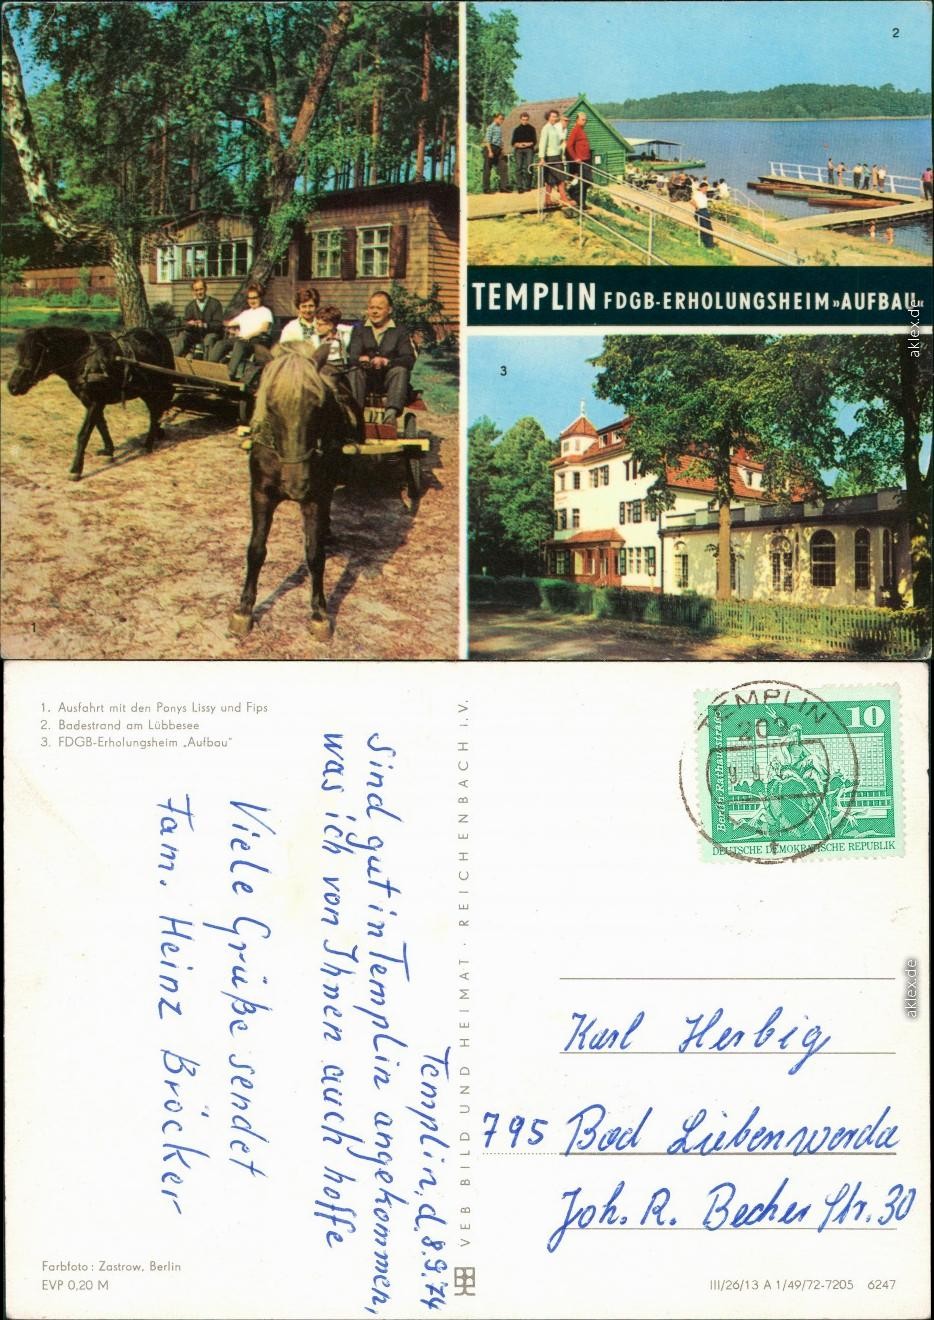 2
TEMPLIN FDGB-ERHOLUNGSHEIM »AUFBAU«
3
1
aklex.de
1. Ausfahrt mit den Ponys Lissy und Fips
2. Badestrand am Lübbesee
3. FDGB-Erholungsheim „Aufbau"
Templin, d. 8.9.74
Sind gut in Templin angekommen,
was ich von Ihnen auch hoffe
Viele Grüße sendet
Fam. Heinz Bröcker
Farbfoto: Zastrow, Berlin
EVP 0,20 M
VEB BILD UND HEIMAT · REICHENBACH I. V.
TEMPLIN
209
10
Berlin, Rathausstraße
DEUTSCHE DEMOKRATISCHE REPUBLIK
aklex.de
Karl Herbig
795 Bad Liebenwerda
Joh. R. Becher Str. 30
III/26/13 A 1/49/72-7205 6247